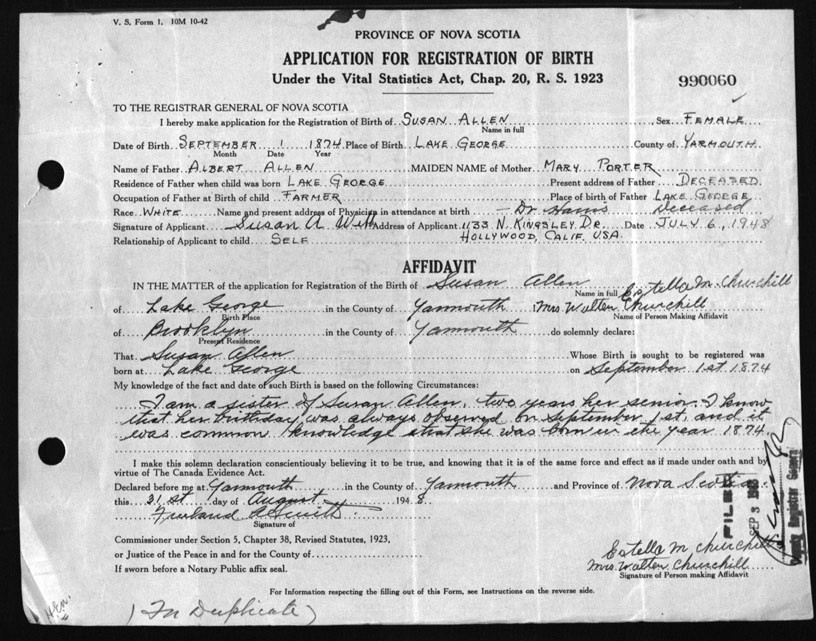 V. S. Form 1. 10M 10-42
PROVINCE OF NOVA SCOTIA
APPLICATION FOR REGISTRATION OF BIRTH
Under the Vital Statistics Act, Chap. 20, R. S. 1923
990060
TO THE REGISTRAR GENERAL OF NOVA SCOTIA
I hereby make application for the Registration of Birth of SUSAN ALLEN, Sex FEMALE
Name in full
Date of Birth SEPTEMBER 1 1874. Place of Birth LAKE GEORGE County of YARMOUTH
Month Date Year
Name of Father ALBERT ALLEN MAIDEN NAME of Mother MARY PORTER
Residence of Father when child was born LAKE GEORGE Present address of Father DECEASED
Occupation of Father at Birth of child FARMER Place of birth of Father LAKE GEORGE
Race WHITE Name and present address of Physician in attendance at birth — Dr. Harris Deceased
Signature of Applicant Susan A Witt Address of Applicant 1133 N. KINGSLEY DR. Date JULY 6, 1948
Relationship of Applicant to child SELF HOLLYWOOD, CALIF. USA.
AFFIDAVIT
IN THE MATTER of the application for Registration of the Birth of Susan Allen
Name in full Estella M. Churchill
of Lake George in the County of Yarmouth Mrs Walten Churchill
Birth Place Name of Person Making Affidavit
of Brooklyn in the County of Yarmouth do solemnly declare:
Present Residence
That Susan Allen Whose Birth is sought to be registered was
born at Lake George on September 1st 1874
My knowledge of the fact and date of such Birth is based on the following Circumstances:
I am a sister of Susan Allen, two years her senior. I know
that her birthday was always observed on September 1st. and it
was common knowledge that she was born in the year 1874
I make this solemn declaration conscientiously believing it to be true, and knowing that is of the same force and effect as if made under oath and by
virtue of The Canada Evidence Act.
Declared before me at Yarmouth in the County of Yarmouth and Province of Nova Scotia
this 31st day of August 1948
Signature of
Commissioner under Section 5, Chapter 38, Revised Statutes, 1923,
or Justice of the Peace in and for the County of
If sworn before a Notary Public affix seal.
FILED
SEP 3 1948
Deputy Registrar General
Estella M Churchill
Mrs. Walten Churchill
Signature of Person making Affidavit
For Information respecting the filling out of this Form, see Instructions on the reverse side.
(In Duplicate)